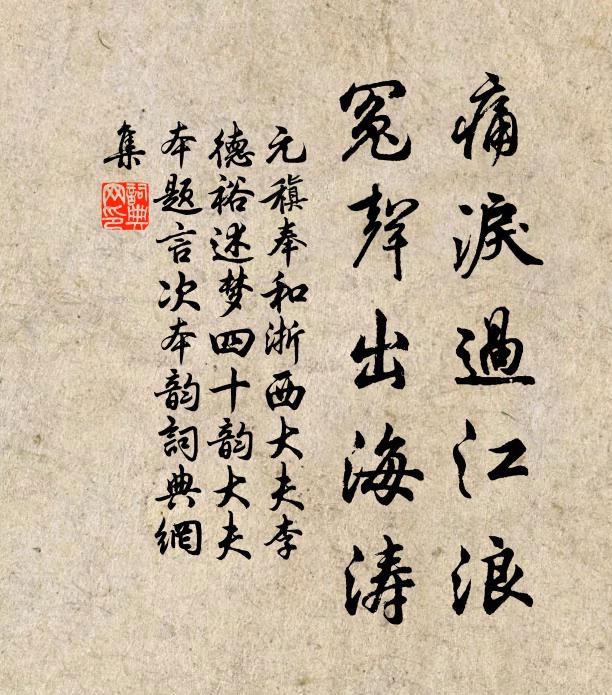 痛淚過江浪
冤聲出海涛
元稹奉和浙西大夫李
德裕述梦四十韵大夫
本题言次本韵詞典網
集
詞典
网印